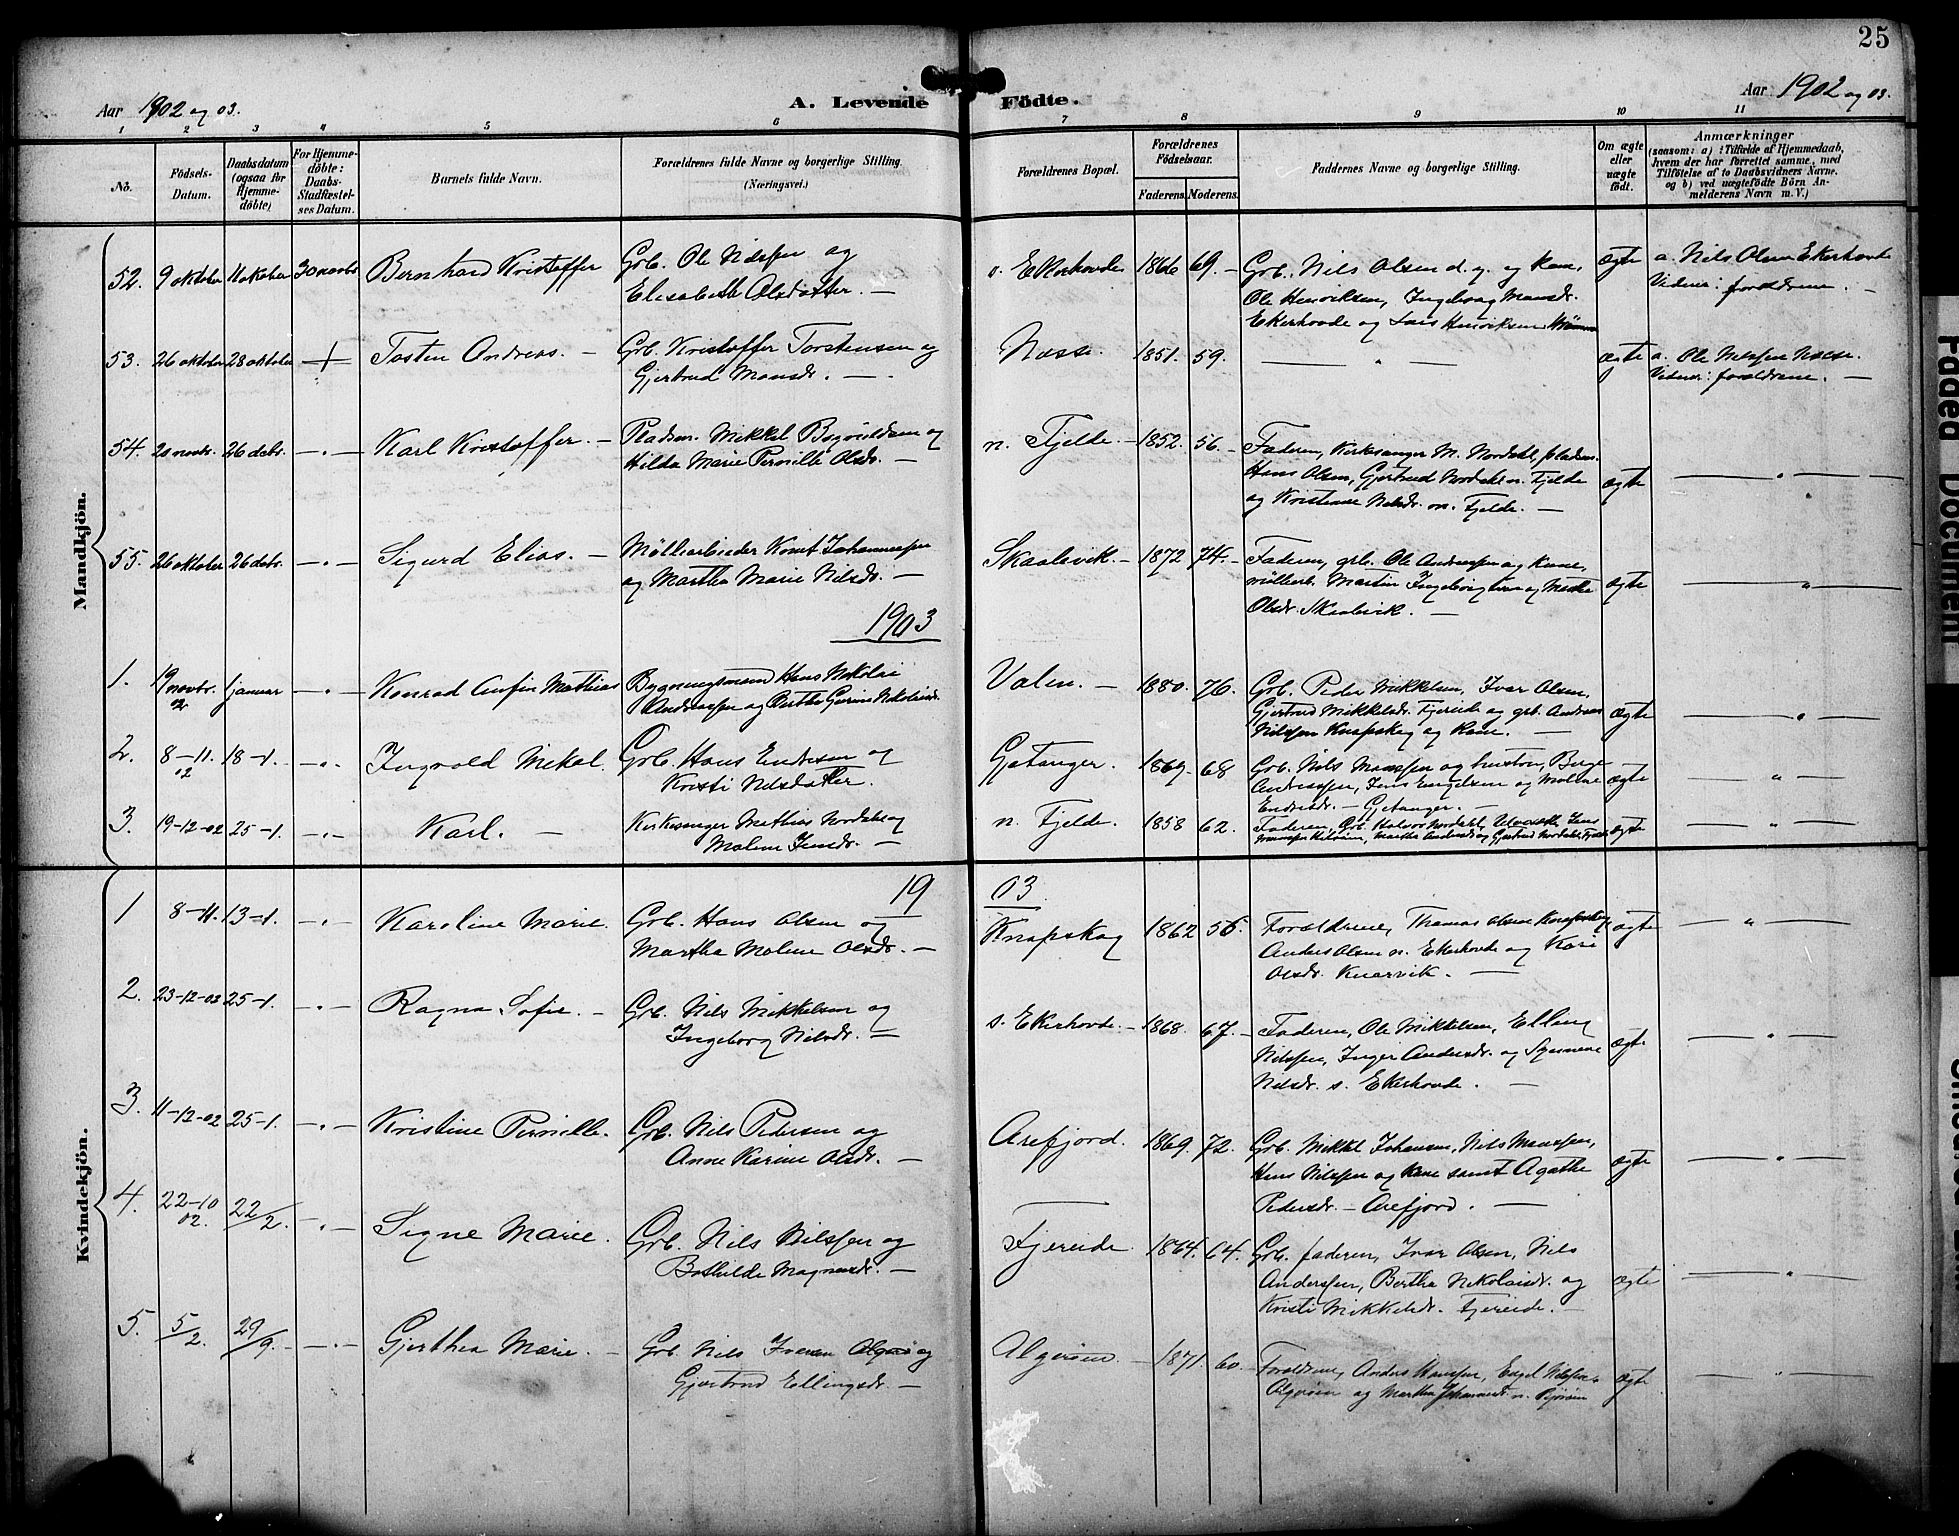 25
Aar 1902 og 03.
A. Levende Födte.
Aar 1902 og 03.
1 2 3 4 5 6 7 8 9 10 11
No.
Födsels-Datum.
Daabsdatum (ogsaa for Hjemme-döbte)
For Hjemme-döbte: Daabs-Stadfæstel-ses Datum.
Barnets fulde Navn.
Forældrenes fulde Navne og borgerlige Stilling.
(Næringsvei.)
Forældrenes Bopæl.
Forældrenes Födselsaar.
Faderens. Moderens.
Faddernes Navne og borgerlige Stilling.
Om ægte eller uægte födt.
Anmærkninger
(saasom: a) i Tilfælde af Hjemmedaab,
hvem der har forrettet samme, med
Tilföielse af to Daabsvidners Navne,
og b) ved uægtefödte Börn An-
melderens Navn m.V.)
Mandkjön.
52. 9 oktober 11 oktober 30 novbr. Bernhard Kristoffer Grb. Ole Nilssen og
Elisabeth Olsdatter. —
Ekerhovde 1866 69. — Grb. Nils Olsen d. y. og kone,
Ole Henriksen, Ingeborg Monsdr.
Ekerhovde og Lars Henriksen
ægte a. Nils Olsen Ekerhovde
Vidner: forældrene. —
53. 26 oktober 28 oktober + Tosten Andreas. — Grb. Kristoffer Torstensen og
Gjertrud Monsdr. —
Nesse. 1851. 59. — " —
ægte a. Ole Nilssen Nesse.
Vidner: forældrene. —
54. 20 novbr. 26 debr. — " — Karl Kristoffer. — Pladsm. Mikkel og
Hilda Marie Pernille Olsdr. —
n. Fjelde. — 1852. 56. — Faderen, Kirkesanger M. Nordahl, pladsm.
Hans Olsen, Gjertrud Nordahl n. Fjelde
og Kristense Nilsdr. n. Fjelde. —
ægte — " —
55. 26 oktober 26 debr. — " — Sigurd Elias. — Møllearbeider Knut Johannessen
og Martha Marie Nilsdr. —
Skaalevik. — 1872 74. — Faderen, grb. Ole Andersen og kone,
møllearb. Martin og
Olsdr. Skaalevik. —
ægte — " —
1903
1. 19 novbr. 02 1 januar — " — Konrad Anfin Mathias Bygningsmand Hans Nikolai
Andreassen og Berthe Gurine Nikolaisdr.
Valen. — 1880. 76. Grb. Peder Mikkelsen, Ivar Olsen,
Gjertrud Mikkelsdr. Fjereide og grb. Andreas
Nilssen Knapskog og kone. —
ægte — " —
2. 8-11. 02 18-1. — " — Ingvald Mikal. Grb. Hans Endresen og
Kristi Nilsdatter.
Gjetanger. 1869. 68 Grb. Nils Monssen og hustru, Berge
Andreassen, Jens Engelsen og Malene
Endresdr. — Gjetanger. —
ægte — " —
3. 19-12-02 25-1. — " — Karl. — Kirkesanger Mathias Nordahl og
Malene Jensdr. —
n. Fjelde. 1858 62. Faderen, Grb. Halvor Nordahl, Jens
Martha og Gjertrud Nordahl, Fjelde
ægte — " —
Kvindekjön.
1903.
1 8-11. 13-1. — " — Karoline Marie. Grb. Hans Olsen og
Martha Malene Olsdr. —
Knapskog 1862 56. Forældrene, Thomas Olsen Knapskog,
Anders Olsen n. Ekerhovde og Kari
Olsdr. Knarvik. —
ægte — " —
2. 23-12-02 25-1. — " — Ragna Sofie. — Grb. Nils Mikkelsen og
Ingeborg Nilsdr. —
s. Ekerhovde. — 1868. 67. — Faderen, Ole Mikkelsen, Elling
Nilssen, Inger Andersdr. og Synneve
Nilsdr. s. Ekerhovde. —
ægte — " —
3. 11-12-02 25-1. — " — Kristine Pernille. Grb. Nils Pedersen og
Anne Karine Olsdr. —
Arefjord. 1869. 72. Grb. Mikkel Johansen, Nils Monssen,
Hans Nilssen og kone samt Agathe
Pedersdr. — Arefjord. —
ægte — " —
4. 22-10 02. 22/2. — " — Signe Marie. Grb. Nils Nilssen og
Bothilde Magnusdr. —
Fjereide. 1864. 64. Grb. faderen, Ivar Olsen, Nils
Anderssen, Bertha Nikolaisdr. og
Kristi Mikkelsdr. Fjereide. —
ægte — " —
5. 5/2. 29/9. — " — Gjerthea Marie. — Grb. Nils Iversen Algerø og
Gjertrud Ellingsdr. —
Algerøen. — 1871. 60. Forældrene, Anders Hanssen, Engel Nilssen,
Algerøen og Martha Johannesdr. n. Bjorøen
ægte — " —
Faded Document